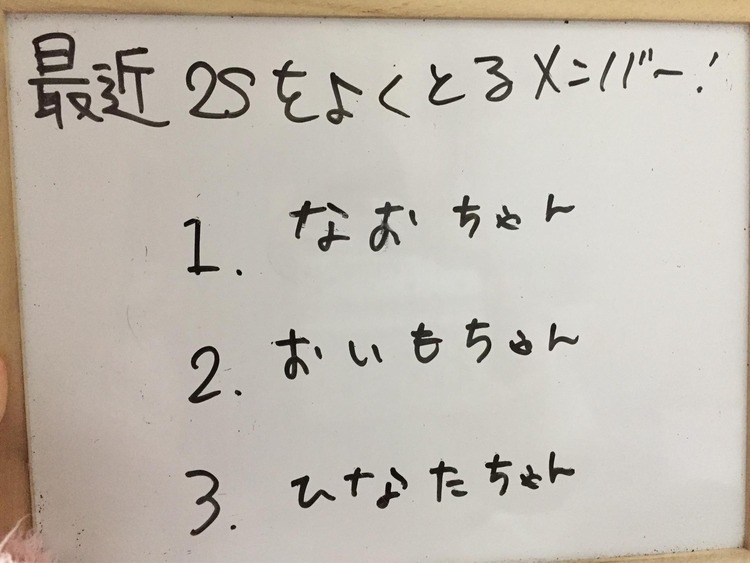 最近2Sをよくとるメンバー!
1. なおちゃん
2. おいもちゃん
3. ひなたちゃん